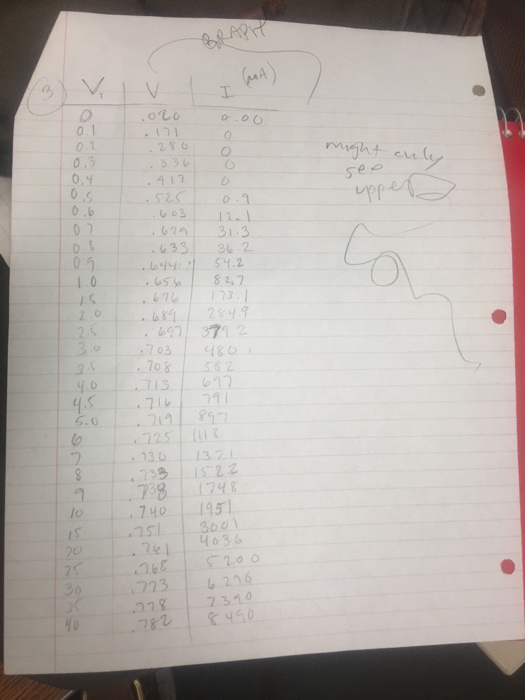 GRAPH
3 V₁ V I (mA)
0 .020 0.00
0.1 .171 0
0.2 .280 0
0.3 .336 0
0.4 .417 0
0.5 .525 0.9
0.6 .603 12.1
0.7 31.3
0.8 .633 36.2
0.9 .644 54.2
1.0 .656 82.7
1.5 .676 173.1
2.0 .689 284.9
2.5 .697 379.2
3.0 .703 480
3.5 .708 582
4.0 .713 697
4.5 .716 791
5.0 .719 897
6 .725 1118
7 .730 1321
8 .733 1522
9 .738 1748
10 .740 1951
15 .751 3001
20 .761 4036
25 .768 5200
30 .773 6296
35 .778 7390
40 .782 8490
might only
see
upper